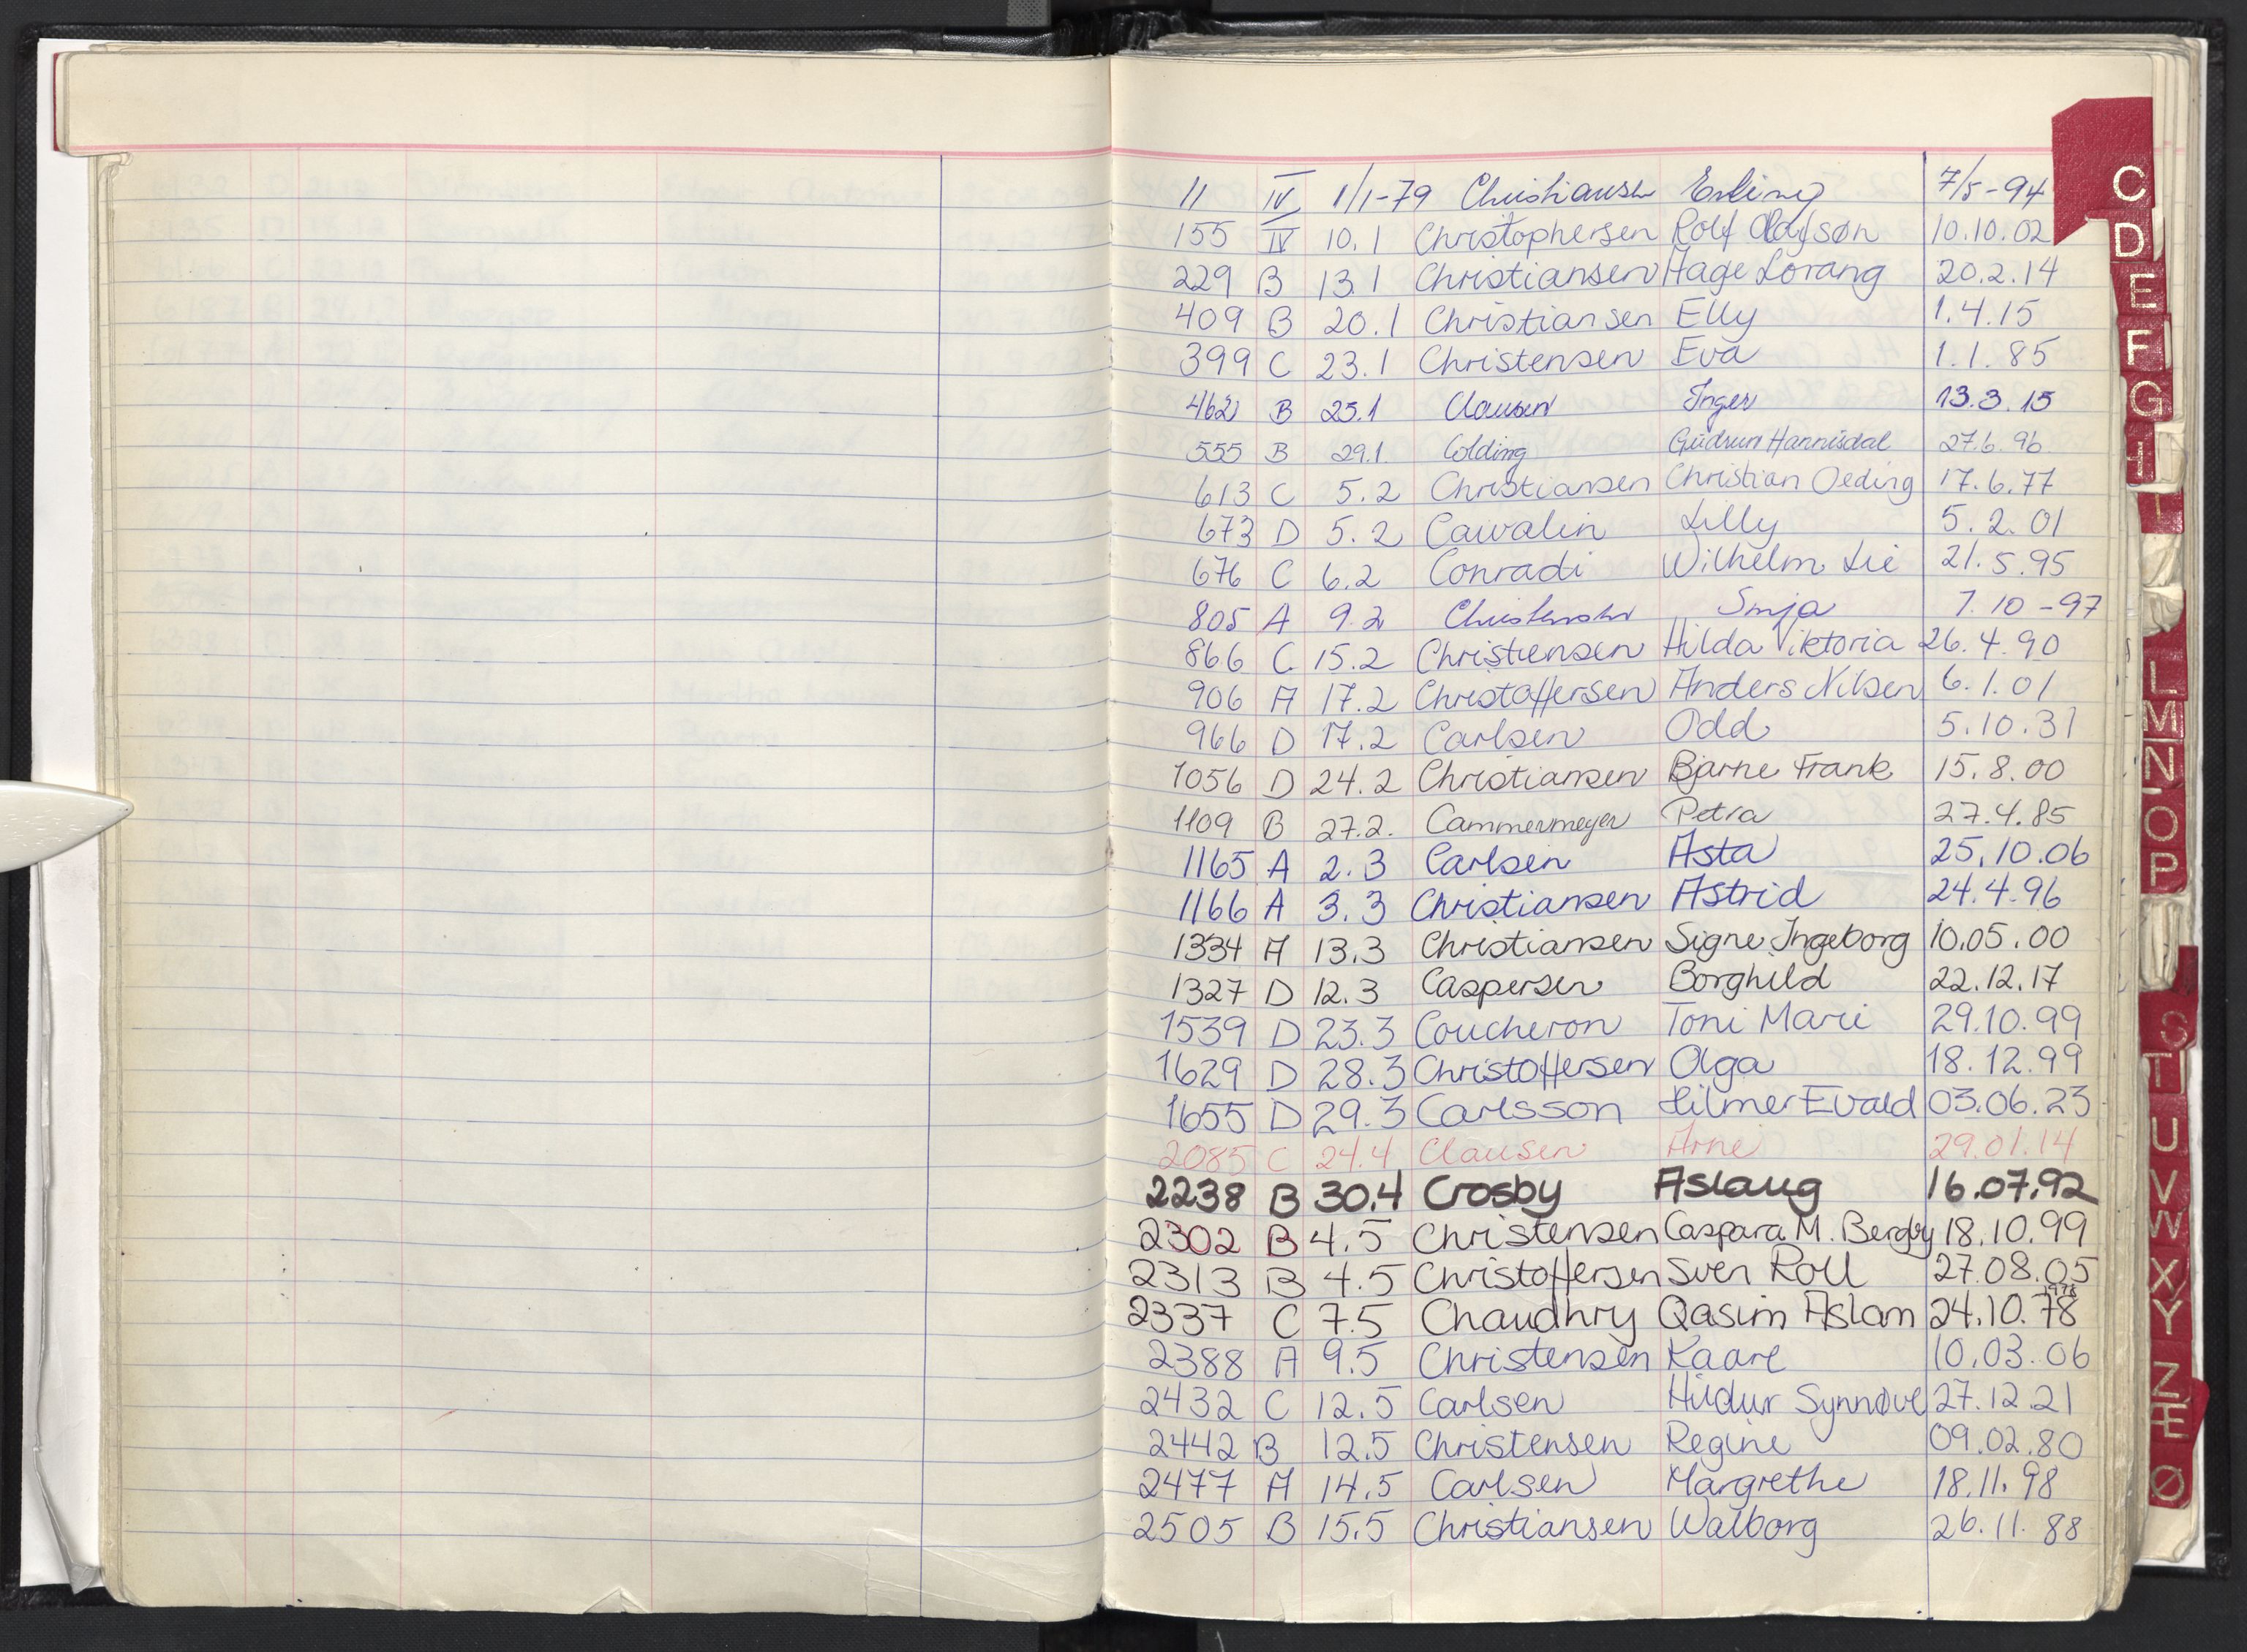 11 IV 1/1-79 Christiansen Erling 7/5-94
155 IV 10.1 Christophersen Rolf Olafsøn 10.10.02
229 B 13.1 Christiansen Hage Lorang 20.2.14
409 B 20.1 Christiansen Elly 1.4.15
399 C 23.1 Christensen Eva 1.1.85
462 B 25.1 Clausen Inger 13.3.15
555 B 29.1. Colding Gudrun Hannisdal 27.6.96
613 C 5.2 Christiansen Christian Oeding 17.6.77
673 D 5.2 Cawalin Lilly 5.2.01
676 C 6.2 Conradi Wilhelm Lie 21.5.95
805 A 9.2 Christensen 7.10-97
866 C 15.2 Christiensen Hilda Viktoria 26.4.90
906 A 17.2 Christoffersen Anders Nilsen 6.1.01
966 D 17.2 Carlsen Odd 5.10.31
1056 D 24.2 Christiansen Bjarne Frank 15.8.00
1109 B 27.2. Cammermeyer Petra 27.4.85
1165 A 2.3 Carlsen Asta 25.10.06
1166 A 3.3 Christiansen Astrid 24.4.96
1334 A 13.3 Christiansen Signe Ingeborg 10.05.00
1327 D 12.3 Caspersen Borghild 22.12.17
1539 D 23.3 Coucheron Toni Marie 29.10.99
1629 D 28.3 Christoffersen Olga 18.12.99
1655 D 29.3 Carlsson Hilmer Evald 03.06.23
2085 C 24.4 Clausen Arne 29.01.14
2238 B 30.4 Crosby Aslaug 16.07.92
2302 B 4.5 Christensen Caspara M. Bergby 18.10.99
2313 B 4.5 Christoffersen Sven Roll 27.08.05
1978
2337 C 7.5 Chaudhry Qasim Aslam 24.10.78
2388 A 9.5 Christensen Kaare 10.03.06
2432 C 12.5 Carlsen Hildur Synnøve 27.12.21
2442 B 12.5 Christensen Regine 09.02.80
2477 A 14.5 Carlsen Margrethe 18.11.98
2505 B 15.5 Christiansen Walborg 26.11.88
C
D
E
F
G
H
I
L
M
N
O
P
S
T
U
V
W
X
Y
Z
Æ
Ø